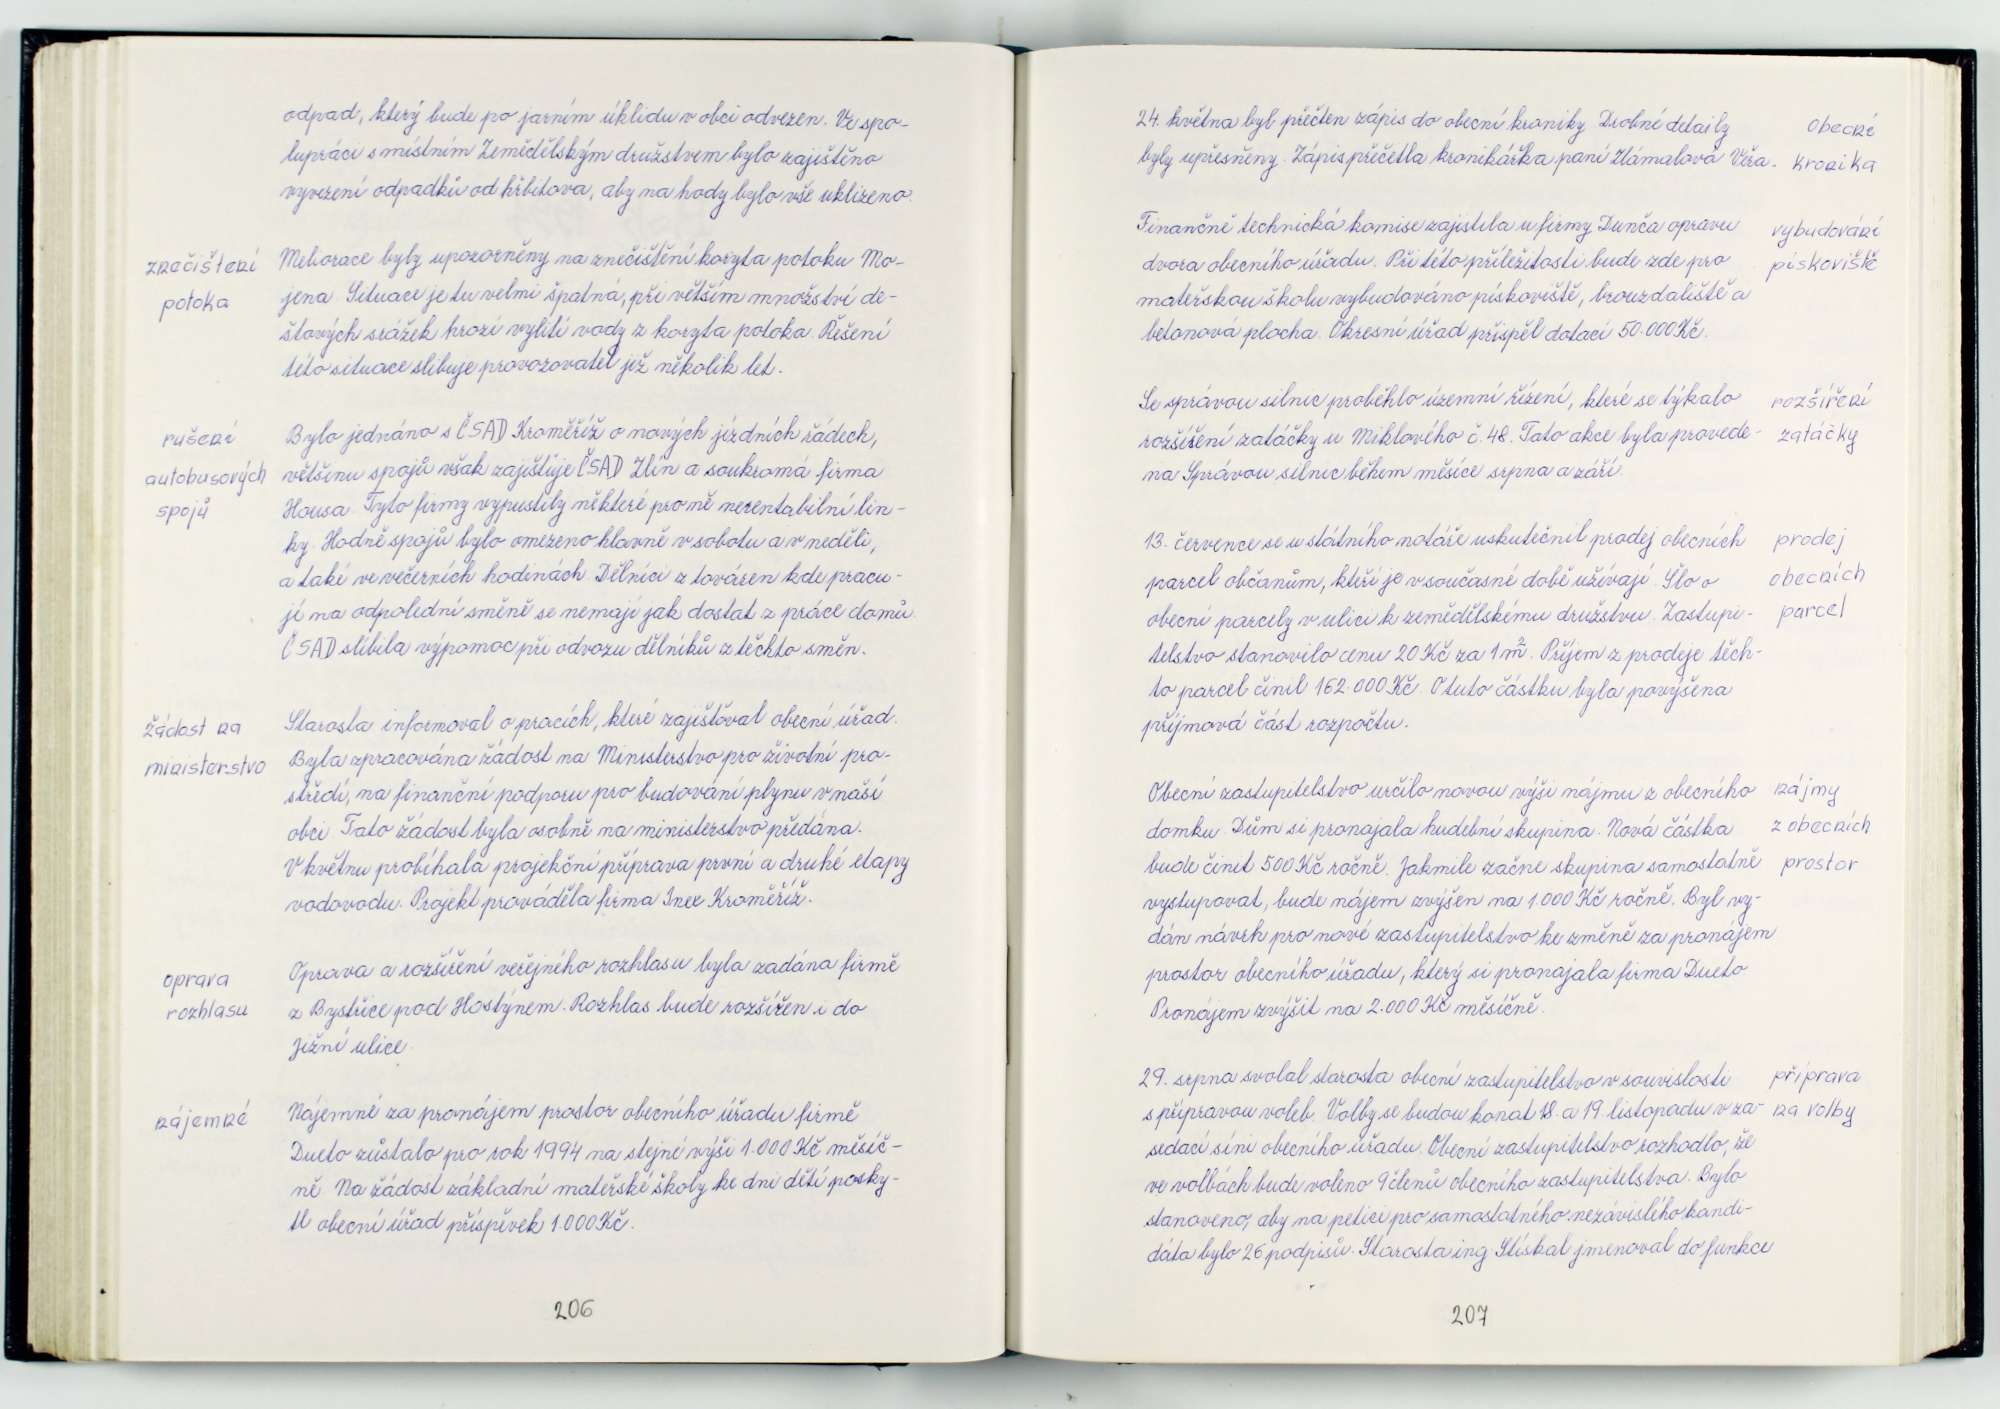 odpad, který bude po jarním úklidu v obci odvezen. Ve spo-
lupráci s místním Zemědělským družstvem bylo zajištěno
vyvezení odpadků od hřbitova, aby na hody bylo vše uklizeno.
znečištění
potoka
Meliorace byly upozorněny na znečištění koryta potoku Mo-
jena. Situace je tu velmi špatná, při větším množství de-
šťových srážek hrozí vylití vody z koryta potoka. Řešení
této situace slibuje provozovatel již několik let.
rušení
autobusových
spojů
Bylo jednáno s ČSAD Kroměříž o nových jízdních řádech,
většinu spojů však zajišťuje ČSAD Zlín a soukromá firma
Housa. Tyto firmy vypustily některé pro ně nerentabilní lin-
ky. Hodně spojů bylo omezeno hlavně v sobotu a v neděli,
a také ve večerních hodinách. Dělníci z továren kde pracu-
jí na odpolední směně se nemají jak dostat z práce domů.
ČSAD slíbila výpomoc při odvozu dělníků z těchto směn.
žádost na
ministerstvo
Starosta informoval o pracích, které zajišťoval obecní úřad.
Byla zpracována žádost na Ministerstvo pro životní pro-
středí, na finanční podporu pro budování plynu v naší
obci. Tato žádost byla osobně na ministerstvo předána.
V květnu probíhala projekční příprava první a druhé etapy
vodovodu. Projekt prováděla firma Inex Kroměříž.
oprava
rozhlasu
Oprava a rozšíření veřejného rozhlasu byla zadána firmě
z Bystřice pod Hostýnem. Rozhlas bude rozšířen i do
Jižní ulice.
nájemné
Nájemné za pronájem prostor obecního úřadu firmě
Dueto zůstalo pro rok 1994 na stejné výši 1.000 Kč měsíč-
ně. Na žádost základní mateřské školy ke dni dětí posky-
tl obecní úřad příspěvek 1.000 Kč.
206
24. května byl přečten zápis do obecní kroniky. Drobné detaily
byly upřesněny. Zápis přečetla kronikářka paní Zlámalová Věra.
obecní
kronika
Finančně technická komise zajistila u firmy Dunča opravu
dvora obecního úřadu. Při této příležitosti bude zde pro
mateřskou školu vybudováno pískoviště, brouzdaliště a
betonová plocha. Okresní úřad přispěl dotací 50.000 Kč.
vybudování
pískoviště
Se správou silnic proběhlo územní řízení, které se týkalo
rozšíření zatáčky u Miklového č. 48. Tato akce byla provede-
na Správou silnic během měsíce srpna a září.
rozšíření
zatáčky
13. července se u státního notáře uskutečnil prodej obecních
parcel občanům, kteří je v současné době užívají. Šlo o
obecní parcely v ulici k zemědělskému družstvu. Zastupi-
telstvo stanovilo cenu 20 Kč za 1 m². Příjem z prodeje těch-
to parcel činil 162.000 Kč. O tuto částku byla povýšena
příjmová část rozpočtu.
prodej
obecních
parcel
Obecní zastupitelstvo určilo novou výši nájmu z obecního
domku. Dům si pronajala hudební skupina. Nová částka
bude činit 500 Kč ročně. Jakmile začne skupina samostatně
vystupovat, bude nájem zvýšen na 1.000 Kč ročně. Byl vy-
dán návrh pro nové zastupitelstvo ke změně za pronájem
prostor obecního úřadu, který si pronajala firma Dueto
Pronájem zvýšit na 2.000 Kč měsíčně.
nájmy
z obecních
prostor
29. srpna svolal starosta obecní zastupitelstvo v souvislosti
s přípravou voleb. Volby se budou konat 18. a 19. listopadu v za-
sedací síni obecního úřadu. Obecní zastupitelstvo rozhodlo, že
ve volbách bude voleno 9 členů obecního zastupitelstva. Bylo
stanoveno, aby na petici pro samostatného nezávislého kandi-
dáta bylo 26 podpisů. Starosta ing Stískal jmenoval do funkce
příprava
na volby
207